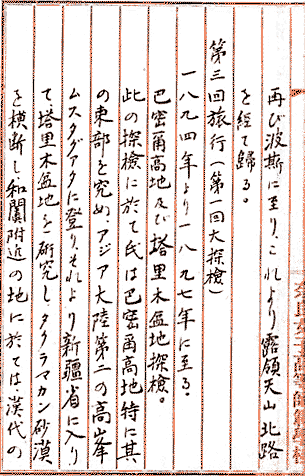 再び波斯に至り、これより露領天山北路
を経て歸る。
第三回旅行(第一回大探檢)
一八九四年より一八九七年に至る。
巴密爾高地及び塔里木盆地探檢。
此の探檢に於て氏は巴密爾高地特に其
の東部を究め、アジア大陸第二の高峯
ムスタグアタに登り、それより新疆省に入り
て塔里木盆地を研究し、タクラマカン砂漠
を横断し、和闐附近の地に於ては漢代の